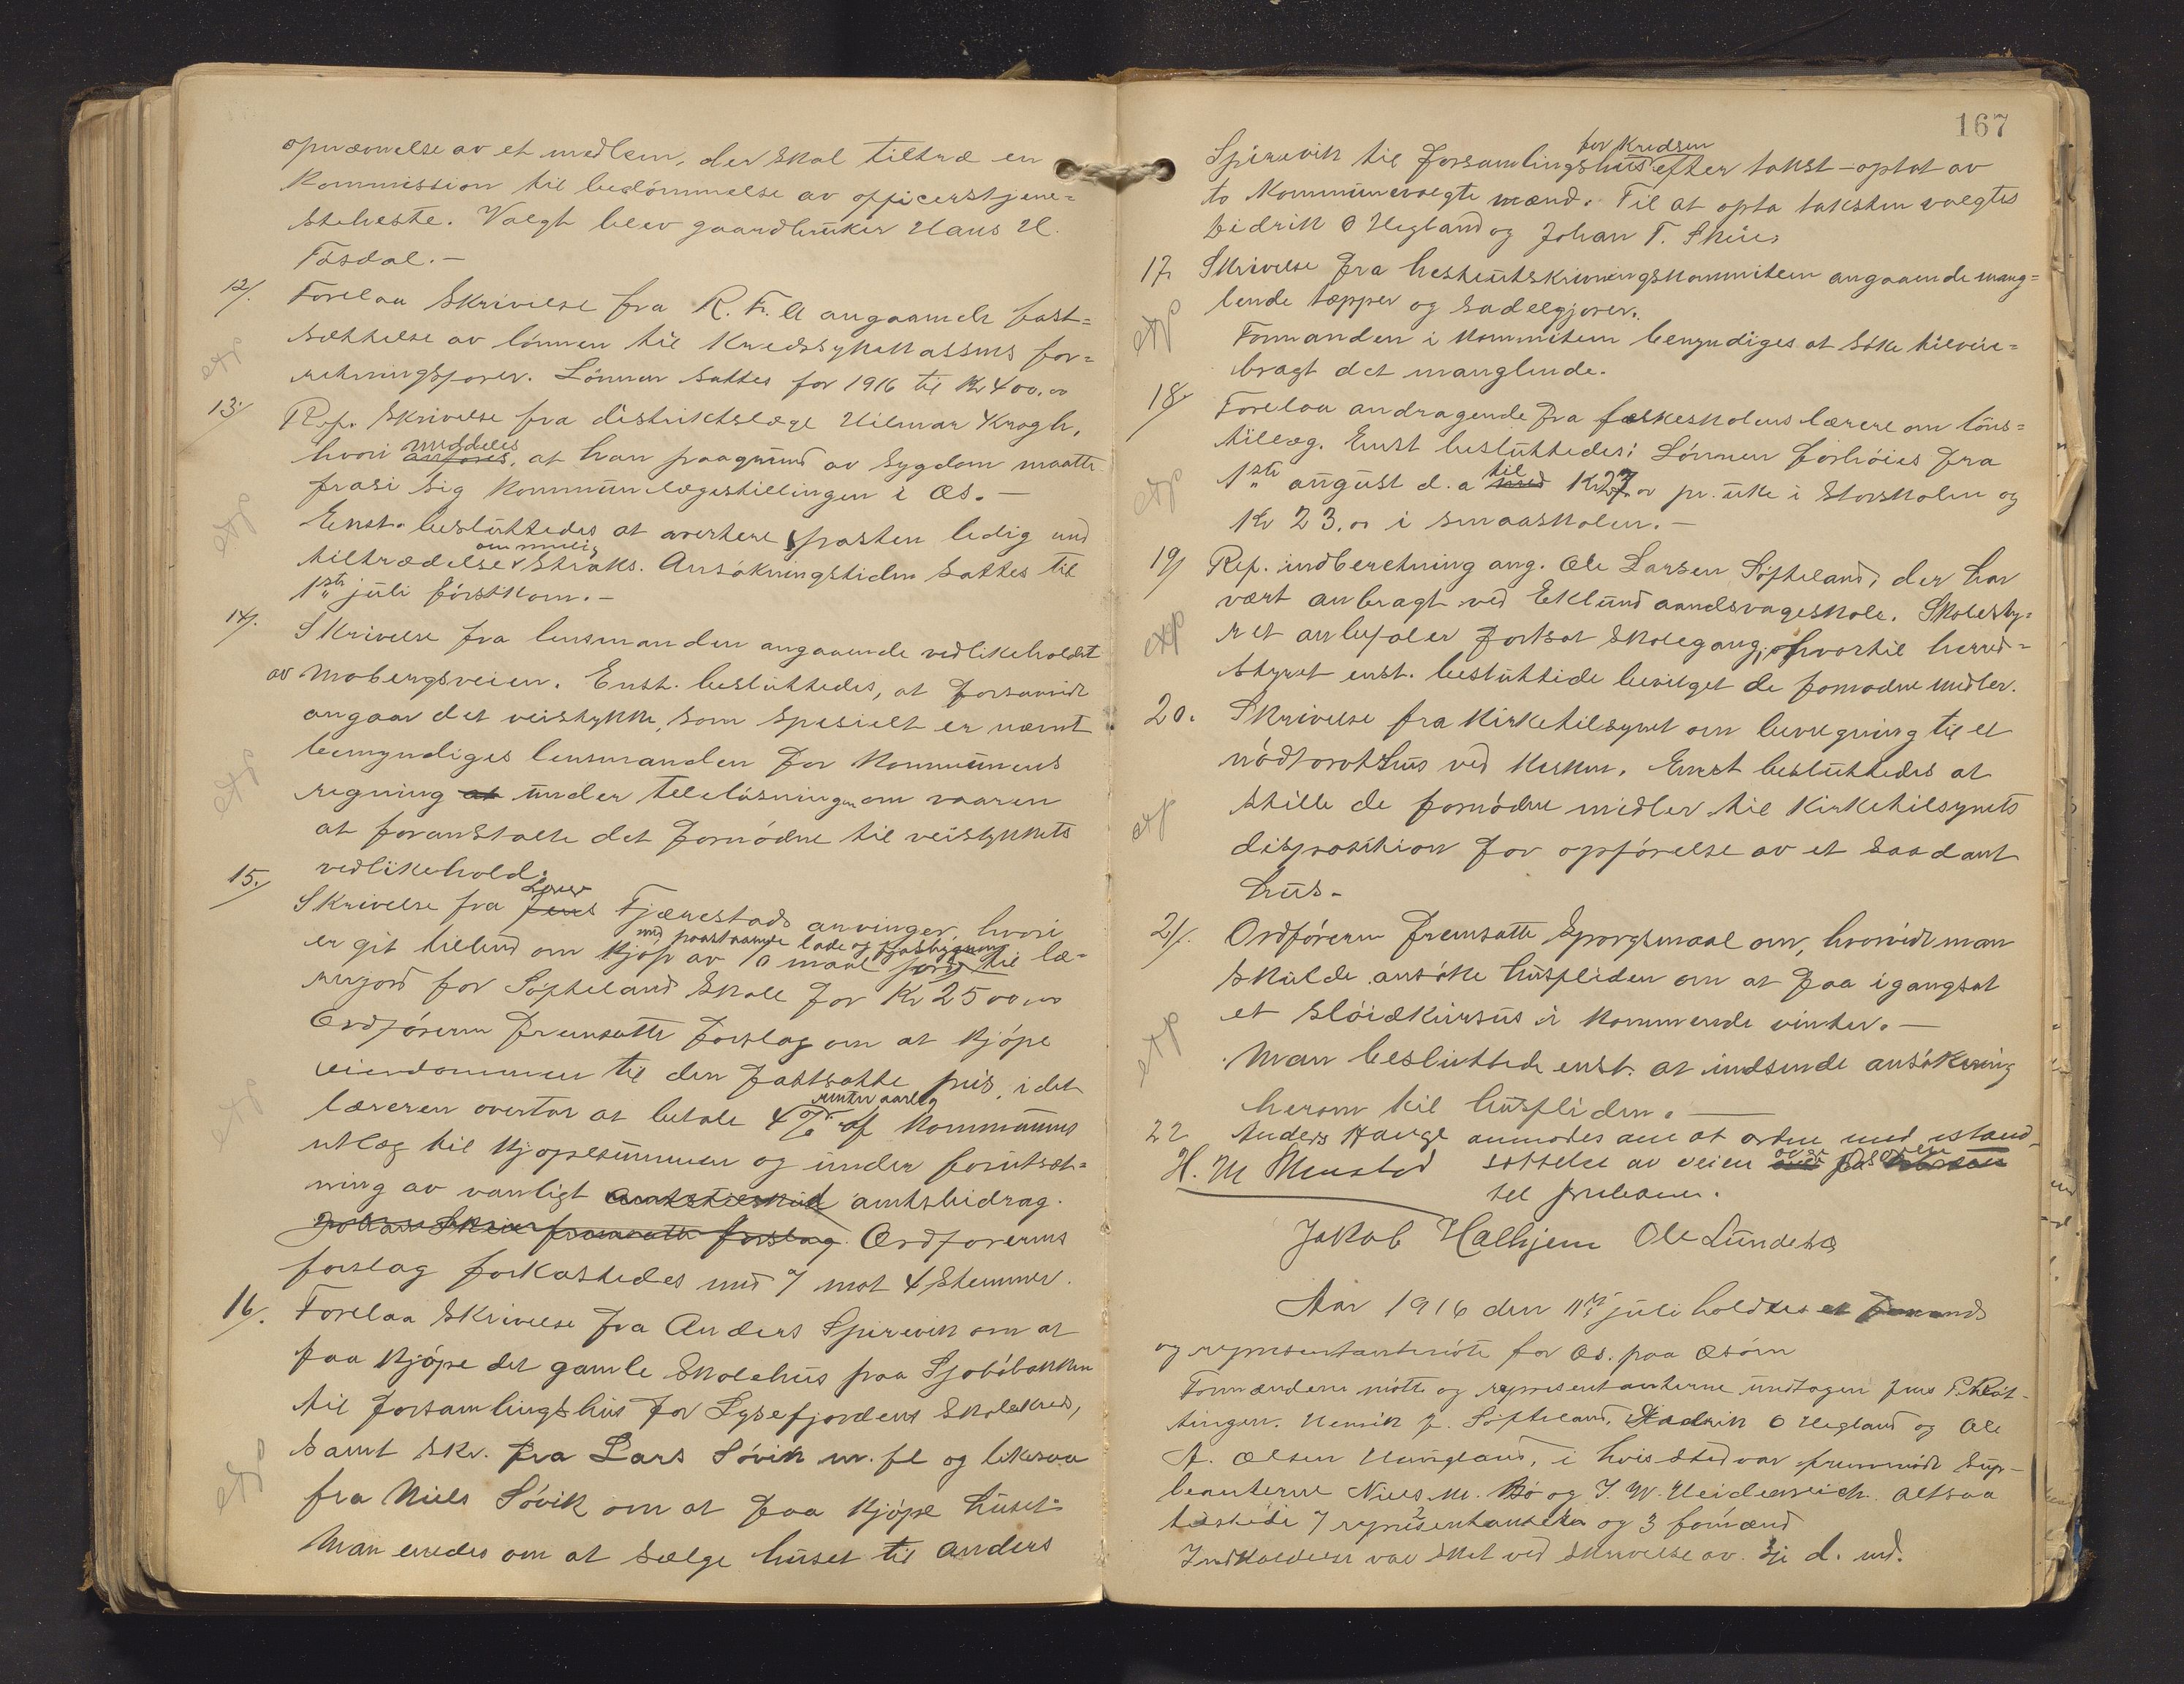 opnævnelse av et medlem, der skal tiltræ en
kommission til bedømmelse av officerstjene=
stehæste. Valgt blev gaardbruker Hans H.
Tøsdal.-
12/. Forelaa skrivelse fra R. F. A angaaende fast=
sættelse av lønnen til kredssykekassens for=
retningsfører. Lønnen sattes for 1916 til kr 400.00
13/ Ref. skrivelse fra distriktslæge Hilmar Krogh,
hvori meddeles, at han paagrund av sygdom maatte
frasi sig kommunelægestillingen i Os.-
Enst. besluttedes at avertere posten ledig med
tiltrædelse om mulig straks. Ansøkningstiden sattes til
1ste juli førstkom.-
14/. Skrivelse fra lensmanden angaaende vedlikeholdet
av Mobergsveien. Enst. besluttedes, at forsaavidt
angaar det veistykke, som spesielt er nævnt
bemyndiges lensmanden for kommunens
regning under teleløsningen om vaaren
at foranstalte det fornødne til veistykkets
vedlikehold.
15./ Skrivelse fra Lars Fjærestads arvinger, hvori
er git tilbud om kjøp av 10 maal jord med paastaaende lade og fjøsbygning til læ=
rerjord for Søfteland skole for Kr 2500.00
Ordføreren fremsatte forslag om at kjøpe
eiendommen til den fastsatte pris, idet
læreren overtar at betale 4 % renter aarlig af kommunens
utlæg til kjøpesummen og under forutsæt=
ning av vanligt amtsbidrag.
Johan Skeie fremsatte forslag Ordførerens
forslag forkastedes med 7 mot 4 stemmer.
16/. Forelaa skrivelse fra Anders Spirevik om at
faa kjøpe det gamle skolehus paa Sjøbøbakken
til forsamlingshus for Lysefjordens skolekreds,
samt skr. fra Lars Søvik m. fl og likesaa
fra Niels Søvik om at faa kjøpe huset.
Man enedes om at sælge huset til Anders
167
Spirevik til forsamlingshus for kredsen efter takst - optat av
to kommunevalgte mænd. Til at opta taksten valgtes
Didrik O Hegland og Johan T. Skeie,
17. Skrivelse fra hesteutskrivningskommiteen angaaende mang=
lende tæpper og sadelgjorer.
Formanden i kommiteen bemyndiges at søke tilveie=
bragt det manglende.
18/ Forelaa andragende fra folkeskolens lærere om løns=
tillæg. Enst besluttedes: Lønnen forhøies fra
1ste august d.a til Kr 27.00 pr. uke i storskolen og
Kr 23.00 i smaaskolen.-
19/ Ref. indberetning ang. Ole Larsen Søfteland, der har
vært anbragt ved Eklund aandsvageskole. Skolesty=
ret anbefaler fortsat skolegang, hvortil herred=
styret enst. besluttede bevilget de fornødne midler.
20. Skrivelse fra kirketilsynet om bevilgning til et
nødtørfthus ved kirken. Enst besluttedes at
stille de fornødne midler til kirketilsynets
disposition for opførelse av et saadant
hus.
21/. Ordføreren fremsatte spørgsmaal om, hvorvidt man
skulde ansøke husfliden om at faa igangsat
et sløidkursus i kommende vinter.-
Man besluttede enst. at indsende ansøkning
herom til husfliden.
22 Anders Hauge anmodes om at ordne med istand-
sættelse av veien over
til
H. M Menstad
Jakob Halhjem Ole Lundetræ
Aar 1916 den 11te juli holdtes et formands
og representantmøte for Os. paa Osøren
Formændene møtte og representanterne undtagen Jens P. Røt-
tingen. Henrik J. Søfteland, Didrik O Hegland og Ole
A. Olsen Hauglands, i hvis sted var fremmødt sup-
leanterne Niels M. Bø og J. W. Heidenreich. Altsaa
tilstede 7 representanter og 3 formænd
Indkaldelse var sket ved skrivelse av 3je d. md.